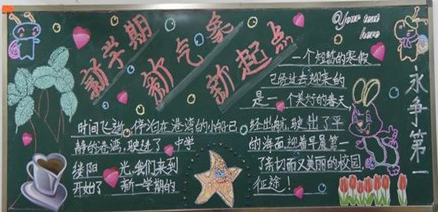 新学期
新气象
新起点
Your text
here
一个短暂的寒假
已经过去迎来的
是一个美好的春天
永争第一
时间飞逝,停泊在港湾的小船已
静的港湾,驶进了
绕阳 光,我们来到
开始了 新一学期的
经出航,驶出了平
的海面,迎着早晨第一
了亲切而又美丽的校园
征途!